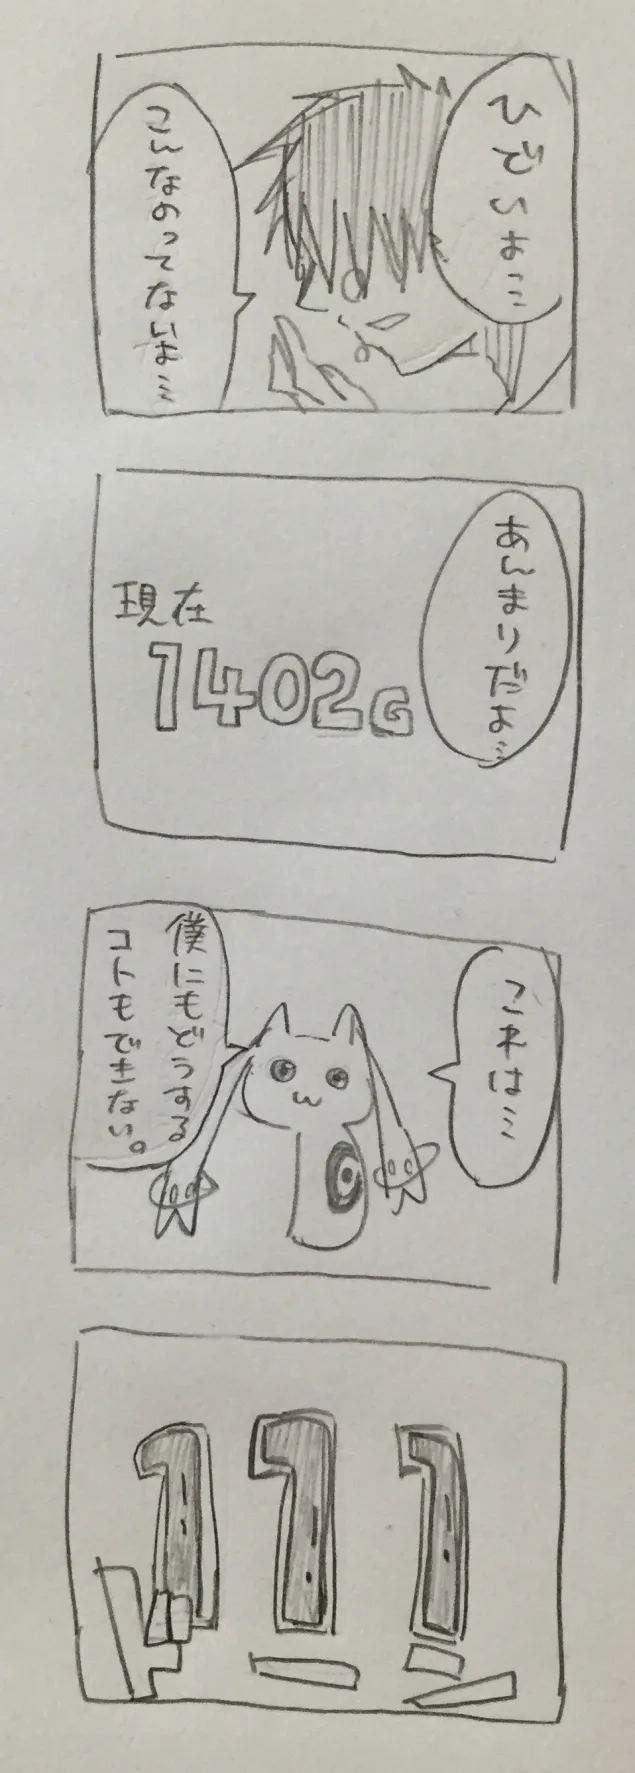 ひどいよ…
こんなのってないよ…
あんまりだよ…
現在
1402G
これは…
僕にもどうする
コトもできない。
111